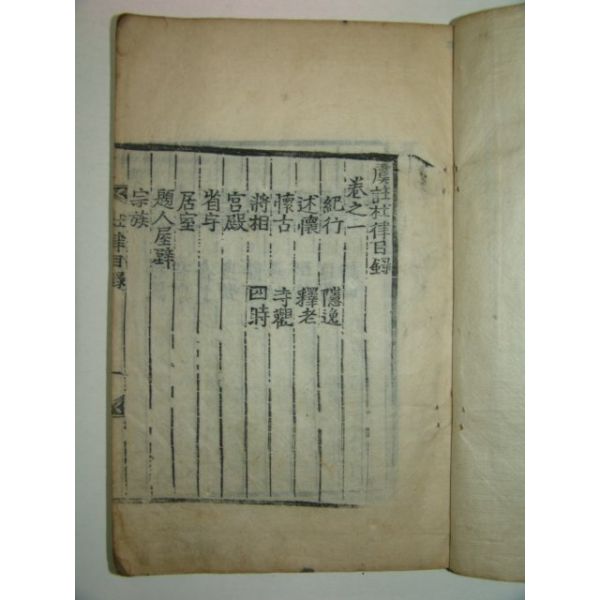 虞註杜律目錄
卷之一
紀行 隱逸
述懷 釋老
懷古 寺觀
將相 四時
宮殿
省宇
居室
題人屋壁
宗族
杜律目錄